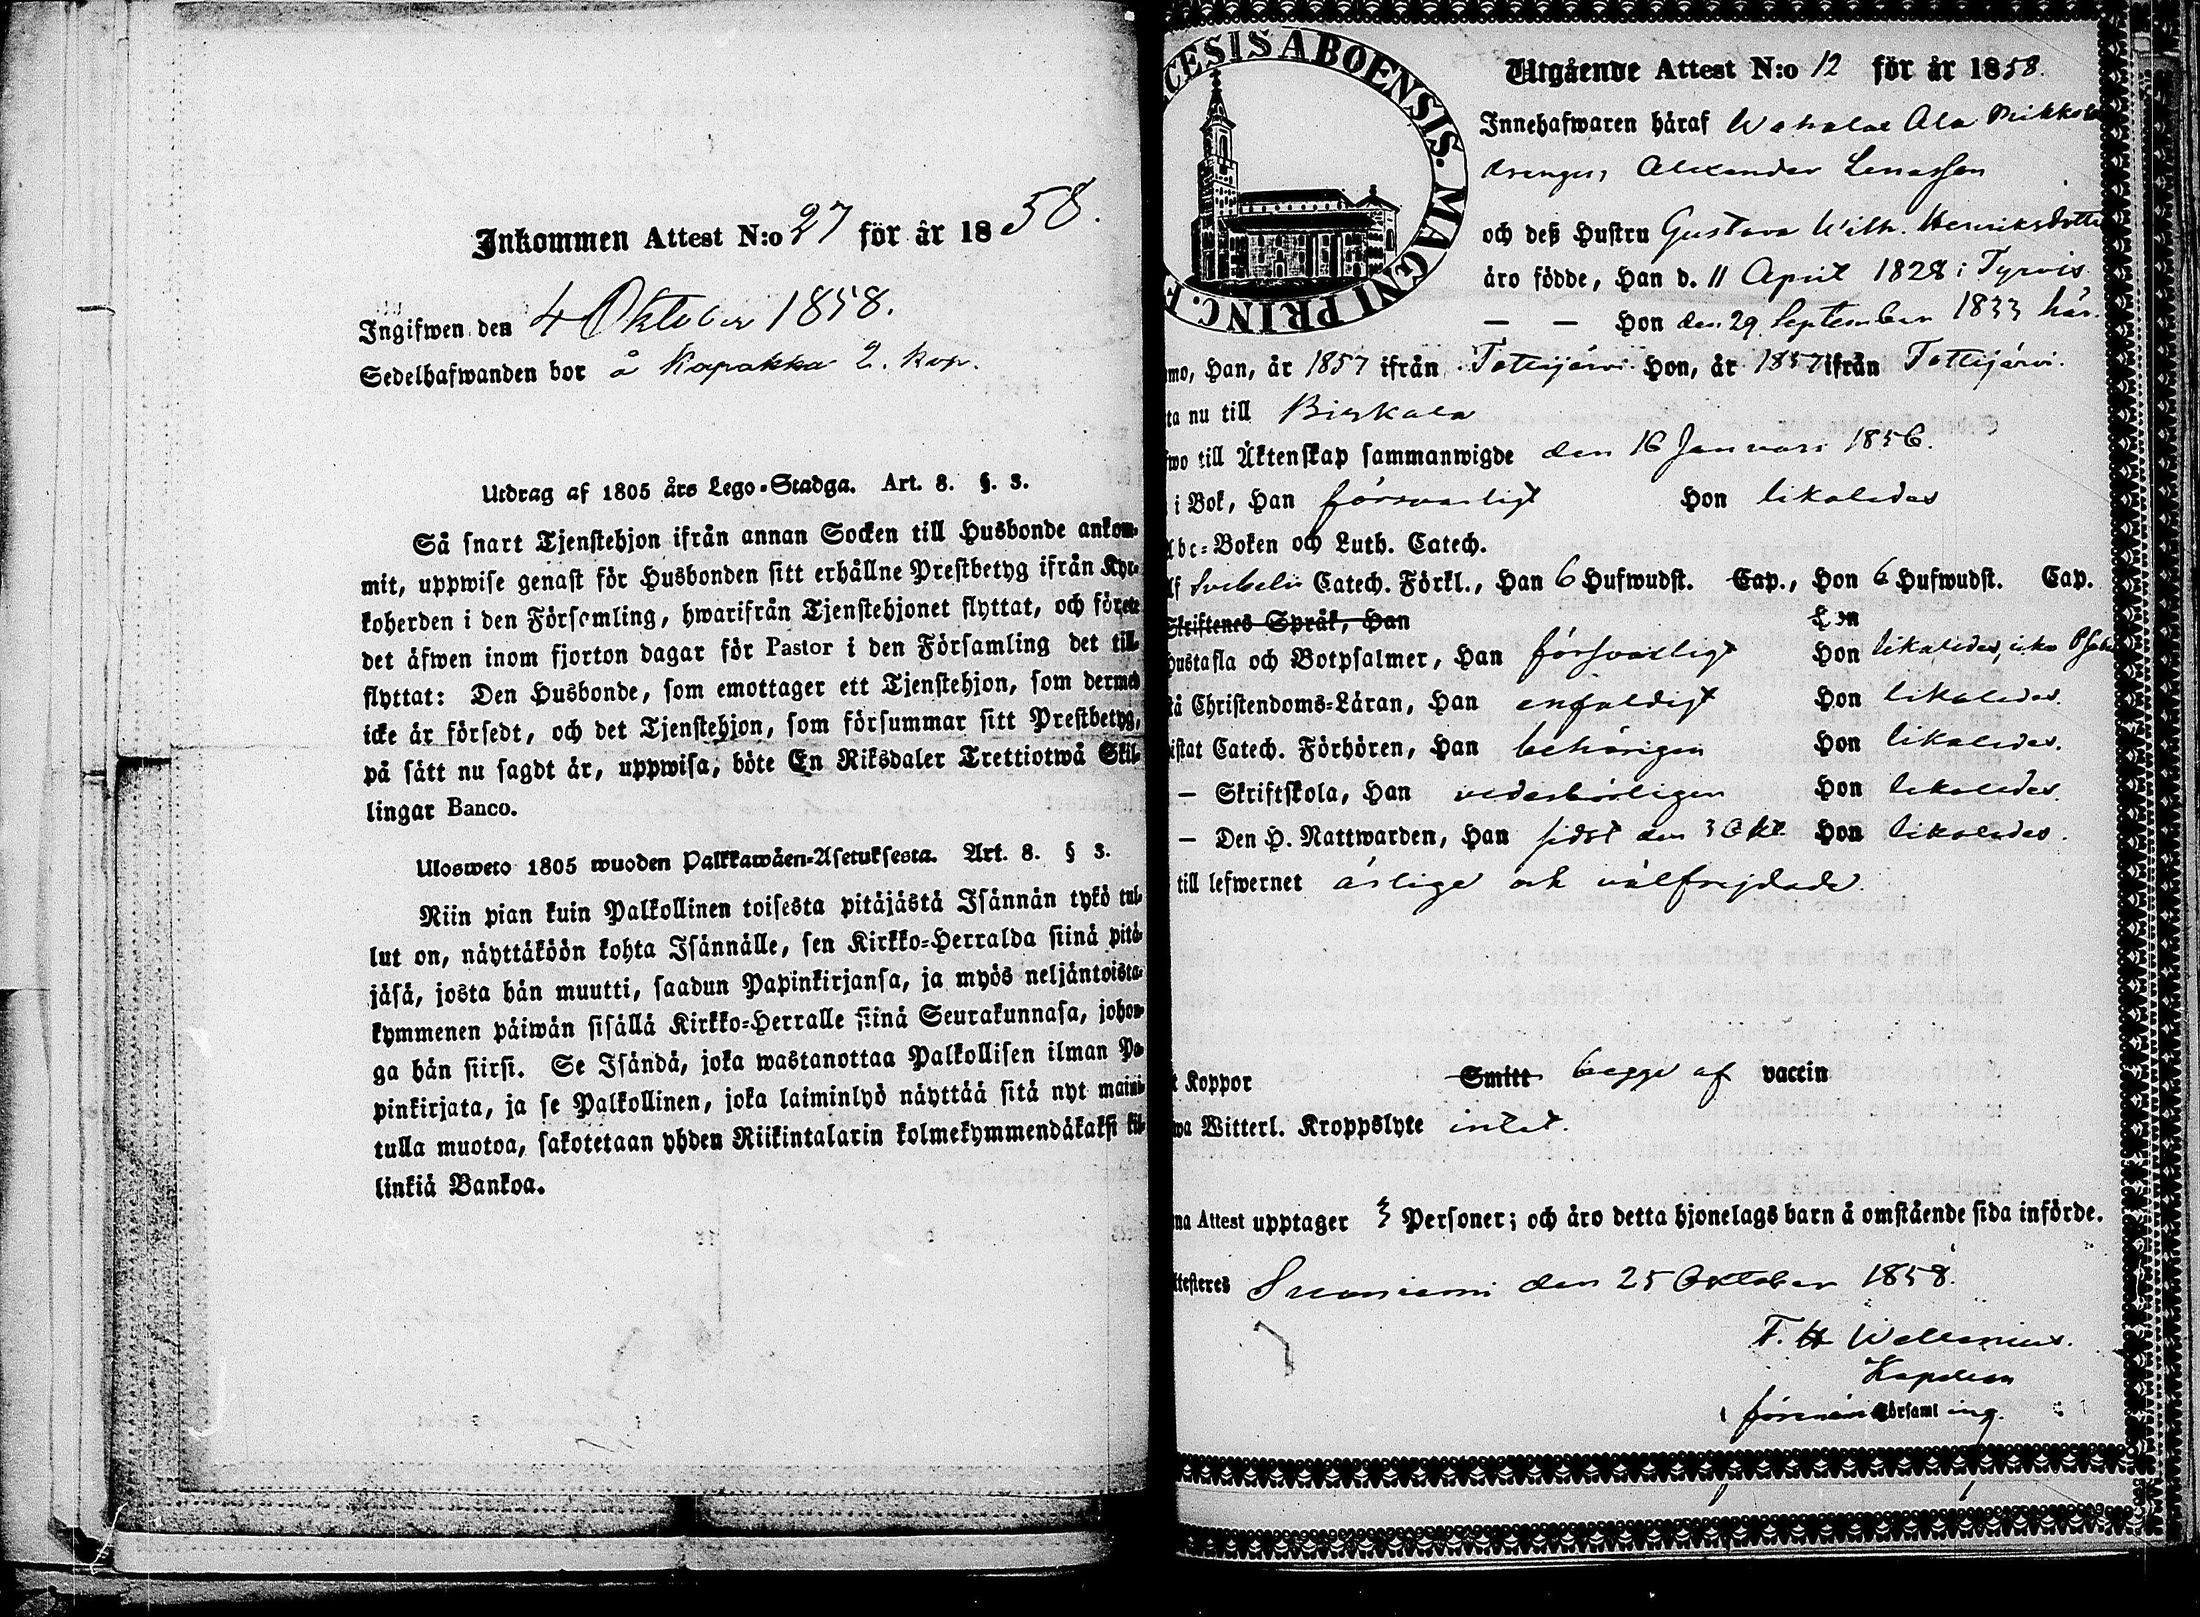 Inkommen Attest N:o 27 för år 1858.
Ingifwen den 4 Oktober 1858.
Sedelhafwanden bor å Kapakka 2. kap.
Utdrag af 1805 års Lego-Stadga. Art. 8. §. 3.
Så snart Tjenstehjon ifrån annan Socken till Husbonde ankom-
mit, uppwise genast för Husbonden sitt erhållne Prestbetyg ifrån Kyr-
koherden i den Församling, hwarifrån Tjenstehjonet flyttat, och förete
det äfwen inom fjorton dagar för Pastor i den Församling det till-
flyttat: Den Husbonde, som emottager ett Tjenstehjon, som dermed
icke är försedt, och det Tjenstehjon, som försummar sitt Prestbetyg,
på sätt nu sagdt är, uppwisa, böte En Riksdaler Trettiotwå Skil-
lingar Banco.
Ulosweto 1805 wuoden Palkkawäen-Asetuksesta. Art. 8. § 3.
Niin pian kuin Palkollinen toisesta pitäjästä Isännän tykö tul-
lut on, näyttäköön kohta Isännälle, sen Kirkko-Herralda siinä pitä-
jäsä, josta hän muutti, saadun Papinkirjansa, ja myös neljäntoista-
kymmenen päiwän sisällä Kirkko-Herralle siinä Seurakunnasa, johon-
ga hän siirsi. Se Isändä, joka wastanottaa Palkollisen ilman Pa-
pinkirjata, ja se Palkollinen, joka laiminlyö näyttää sitä nyt maini-
tulla muotoa, sakotetaan yhden Riikintalarin kolmekymmendäkaksi kil-
linkiä Bankoa.
CESIS ABOENSIS. MAGNI PRINC. F
Utgående Attest N:o 12 för år 1858.
Innehafwaren häraf Ala
drengen, Alexander
och deß Hustru Gustava Wilh. Henriksdotter
äro födde, Han d. 11 April 1828 i Tyrvis
— — Hon den 29 September 1833 här.
mo, Han, år 1857 ifrån Tottijärvi Hon, år 1857 ifrån Tottijärvi.
ta nu till Birkala
wo till Äktenskap sammanwigde den 16 Januari 1856.
i Bok, Han försvarligt Hon likaledes
Abc-Boken och Luth. Catech.
lf Svebelii Catech. Förkl., Han 6 Hufwudst. Cap., Hon 6 Hufwudst. Cap.
Skriftenes Språk, Han Hon
Hustafla och Botpsalmer, Han försvarligt Hon likaledes,
tå Christendoms-Läran, Han enfaldigt Hon likaledes.
istat Catech. Förhören, Han behörigen Hon likaledes.
— Skriftskola, Han vederbörligen Hon likaledes.
— Den H. Nattwarden, Han sidst den 3 Okt. Hon likaledes.
till lefwernet ärlige och välfrejdade.
t Koppor Smitt begge af vaccin
wa Witterl. Kroppslyte intet.
na Attest upptager 3 Personer; och äro detta hjonelags barn å omstående sida införde.
ttesteres Suoniemi den 25 October 1858.
F. H Wallenius.
Kapellan
i församling.